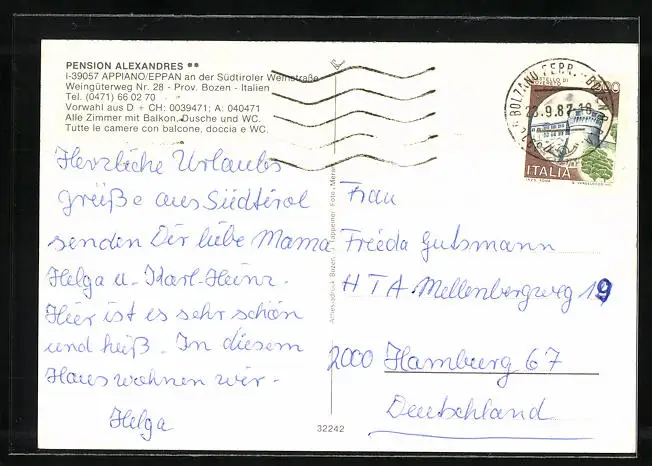 PENSION ALEXANDRES **
I-39057 APPIANO/EPPAN an der Südtiroler Weinstraße
Weingüterweg Nr. 28 - Prov. Bozen - Italien
Tel. (0471) 66 02 70
Vorwahl aus D + CH: 0039471; A: 040471
Alle Zimmer mit Balkon, Dusche und WC.
Tutte le camere con balcone, doccia e WC.
Herzliche Urlaubs
grüße aus Südtirol
senden Dir liebe Mama
Helga u. Karl-Heinz.
Hier ist es sehr schön
und heiß. In diesem
Haus wohnen wir.
Helga
32242
BOLZANO FERR.
23.9.87-19
ITALIA
Frau
Frieda Gutsmann
HTA Mellenbergweg 19
2000 Hamburg 67
Deutschland